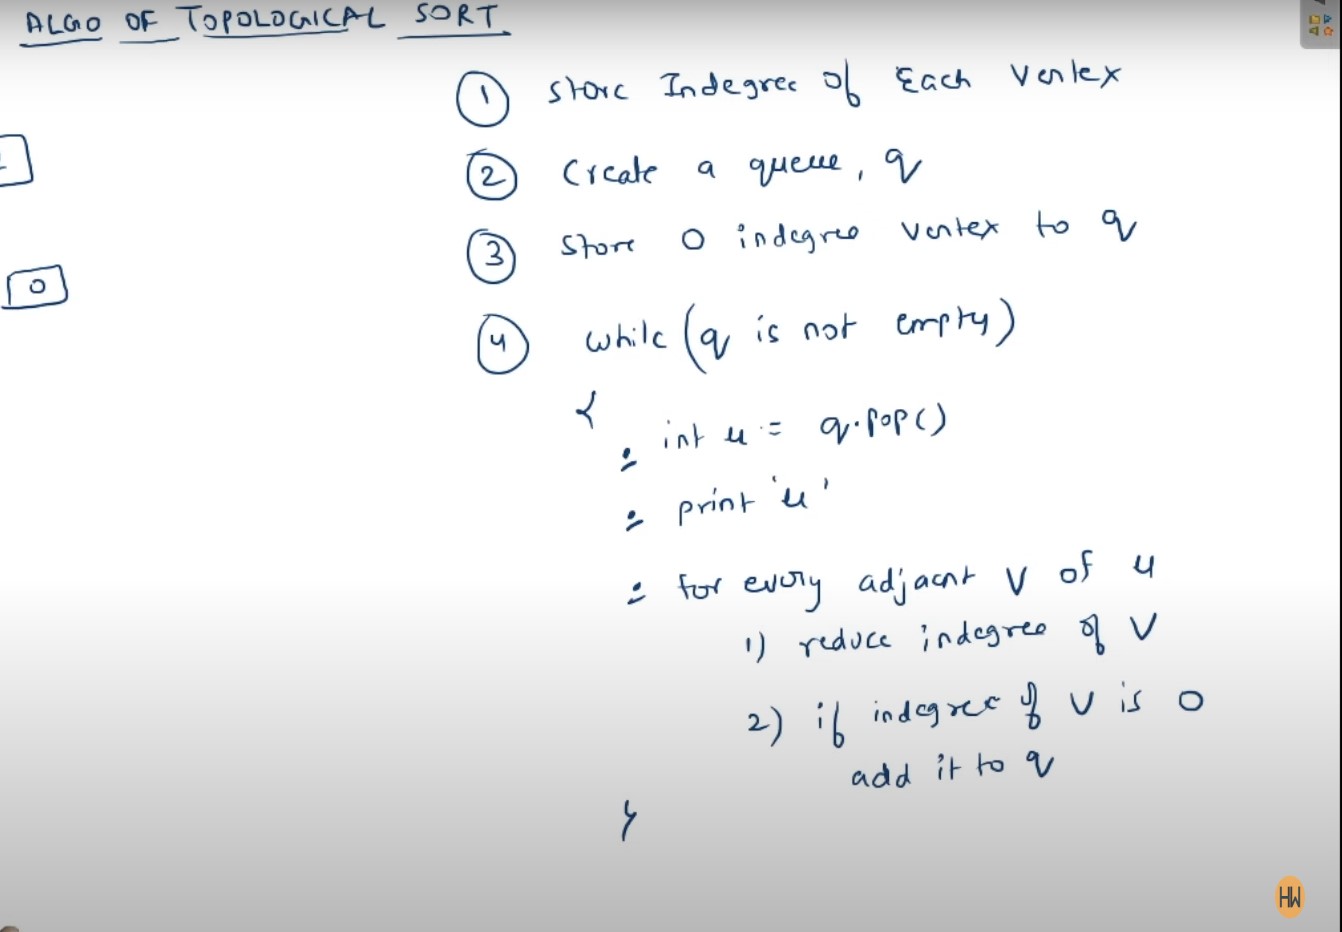 ALGO OF TOPOLOGICAL SORT
1 Store Indegree of Each Vertex
2 Create a queue, q
3 Store 0 indegree vertex to q
0
4 while (q is not empty)
{
int u = q.pop()
print 'u'
for every adjacnt v of u
1) reduce indegree of v
2) if indegree of v is 0
add it to q
}
HW